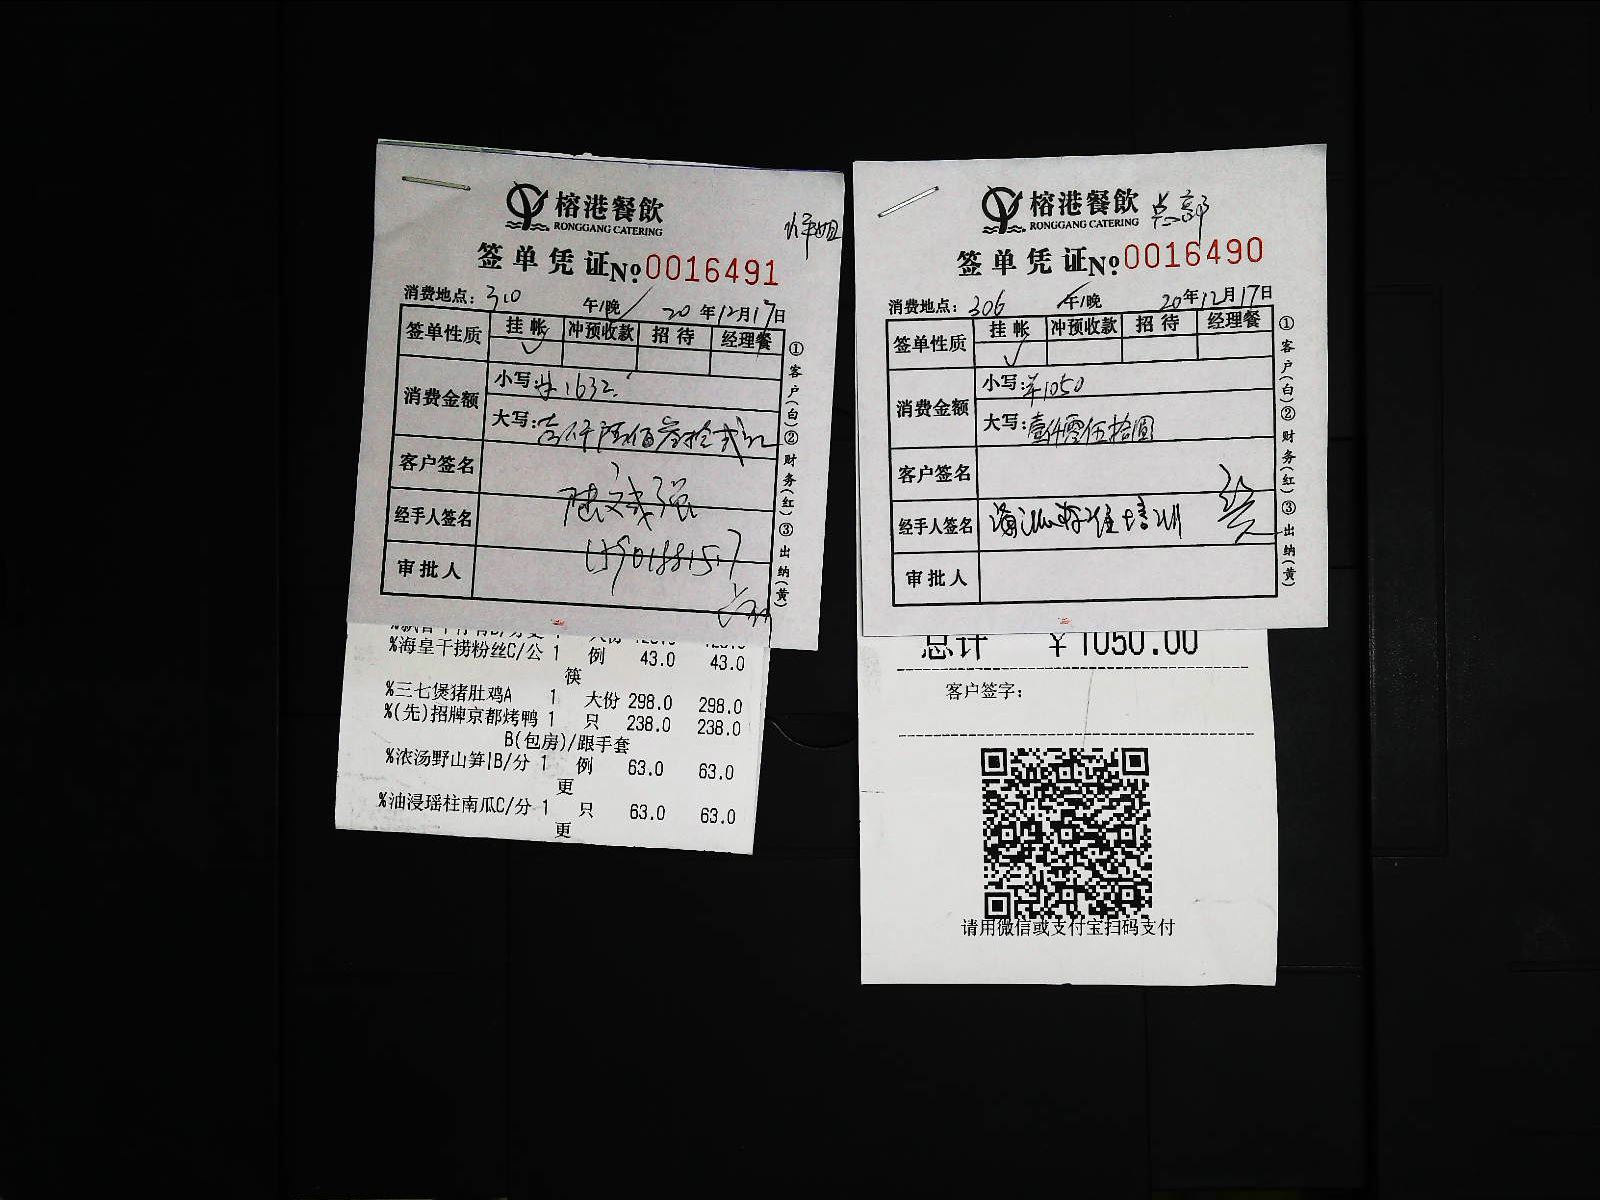 榕港餐飲
RONGGANG CATERING
签单凭证 No 0016491
消费地点: 310 午/晚 20年12月17日
签单性质 挂帐 冲预收款 招待 经理餐
消费金额
小写: ¥1632
大写: 壹仟陆佰叁拾贰元
客户签名
经手人签名
审批人
①客户(白)②财务(红)③出纳(黄)
%海皇干捞粉丝C/公 1 例 43.0 43.0
筷
%三七煲猪肚鸡A 1 大份 298.0 298.0
%(先)招牌京都烤鸭 1 只 238.0 238.0
B(包房)/跟手套
%浓汤野山笋|B/分 1 例 63.0 63.0
更
%油浸瑶柱南瓜C/分 1 只 63.0 63.0
更
榕港餐飲 总部
RONGGANG CATERING
签单凭证 No 0016490
消费地点: 306 午/晚 20年12月17日
签单性质 挂帐 冲预收款 招待 经理餐
消费金额
小写: ¥1050
大写: 壹仟零伍拾圆
客户签名
经手人签名 培训
审批人
①客户(白)②财务(红)③出纳(黄)
总计 ¥1050.00
客户签字:
请用微信或支付宝扫码支付